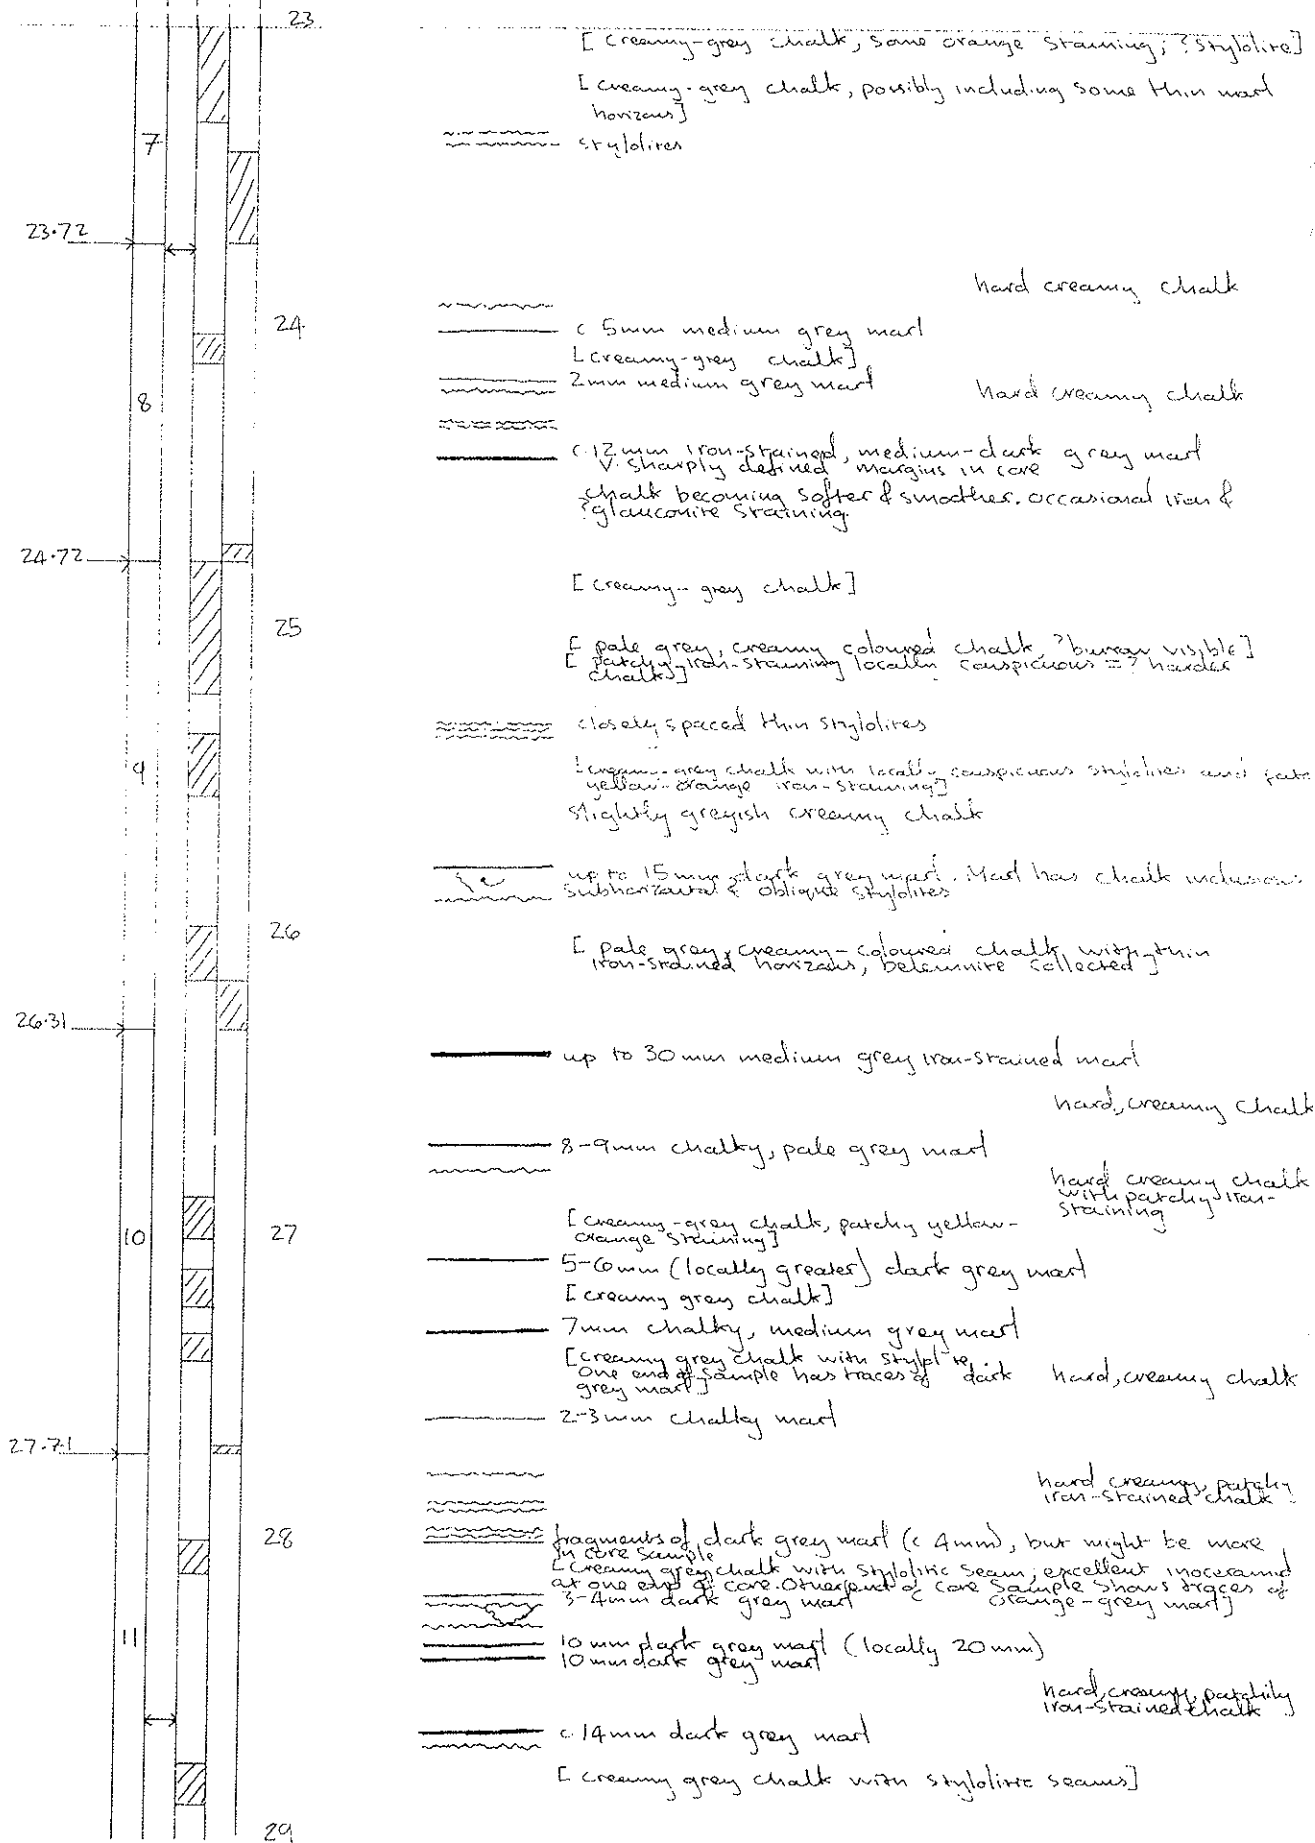 23
[creamy-grey chalk, some orange staining; ?stylolite]
[creamy-grey chalk, possibly including some thin marl
horizons]
7
stylolites
23.72
hard creamy chalk
24
c 5mm medium grey marl
[creamy-grey chalk]
2mm medium grey marl
hard creamy chalk
8
c.12mm iron-stained, medium-dark grey marl
v. sharply defined margins in core
chalk becoming softer & smoother. occasional iron &
?glauconite staining.
24.72
[creamy-grey chalk]
25
[pale grey, creamy coloured chalk, ?burrow visible]
[patchy iron-staining locally conspicuous = ? harder
chalks]
closely spaced thin stylolites
9
[creamy-grey chalk with locally conspicuous stylolites and
yellow-orange iron-staining]
slightly greyish creamy chalk
up to 15mm dark grey marl. Marl has chalk inclusions
subhorizontal & oblique stylolites
26
[pale grey, creamy-coloured chalk with thin
iron-stained horizons, belemnite collected]
26.31
up to 30mm medium grey iron-stained marl
hard, creamy chalk
8-9mm chalky, pale grey marl
hard creamy chalk
with patchy iron-
staining
10
27
[creamy-grey chalk, patchy yellow-
orange staining]
5-6mm (locally greater) dark grey marl
[creamy grey chalk]
7mm chalky, medium grey marl
[creamy grey chalk with
one end of sample has traces of dark
grey marl]
hard, creamy chalk
2-3mm chalky marl
27.71
hard creamy, patchy
iron-stained chalk
28
fragments of dark grey marl (c 4mm), but might be more
in core sample
[creamy grey chalk with stylolitic seam; excellent inoceramid
at one end of core. Other end of core sample shows traces of
orange-grey marl]
3-4mm dark grey marl
11
10mm dark grey marl (locally 20mm)
10mm dark grey marl
hard, creamy, patchily
iron-stained chalk
c.14mm dark grey marl
[creamy grey chalk with stylolitic seams]
29